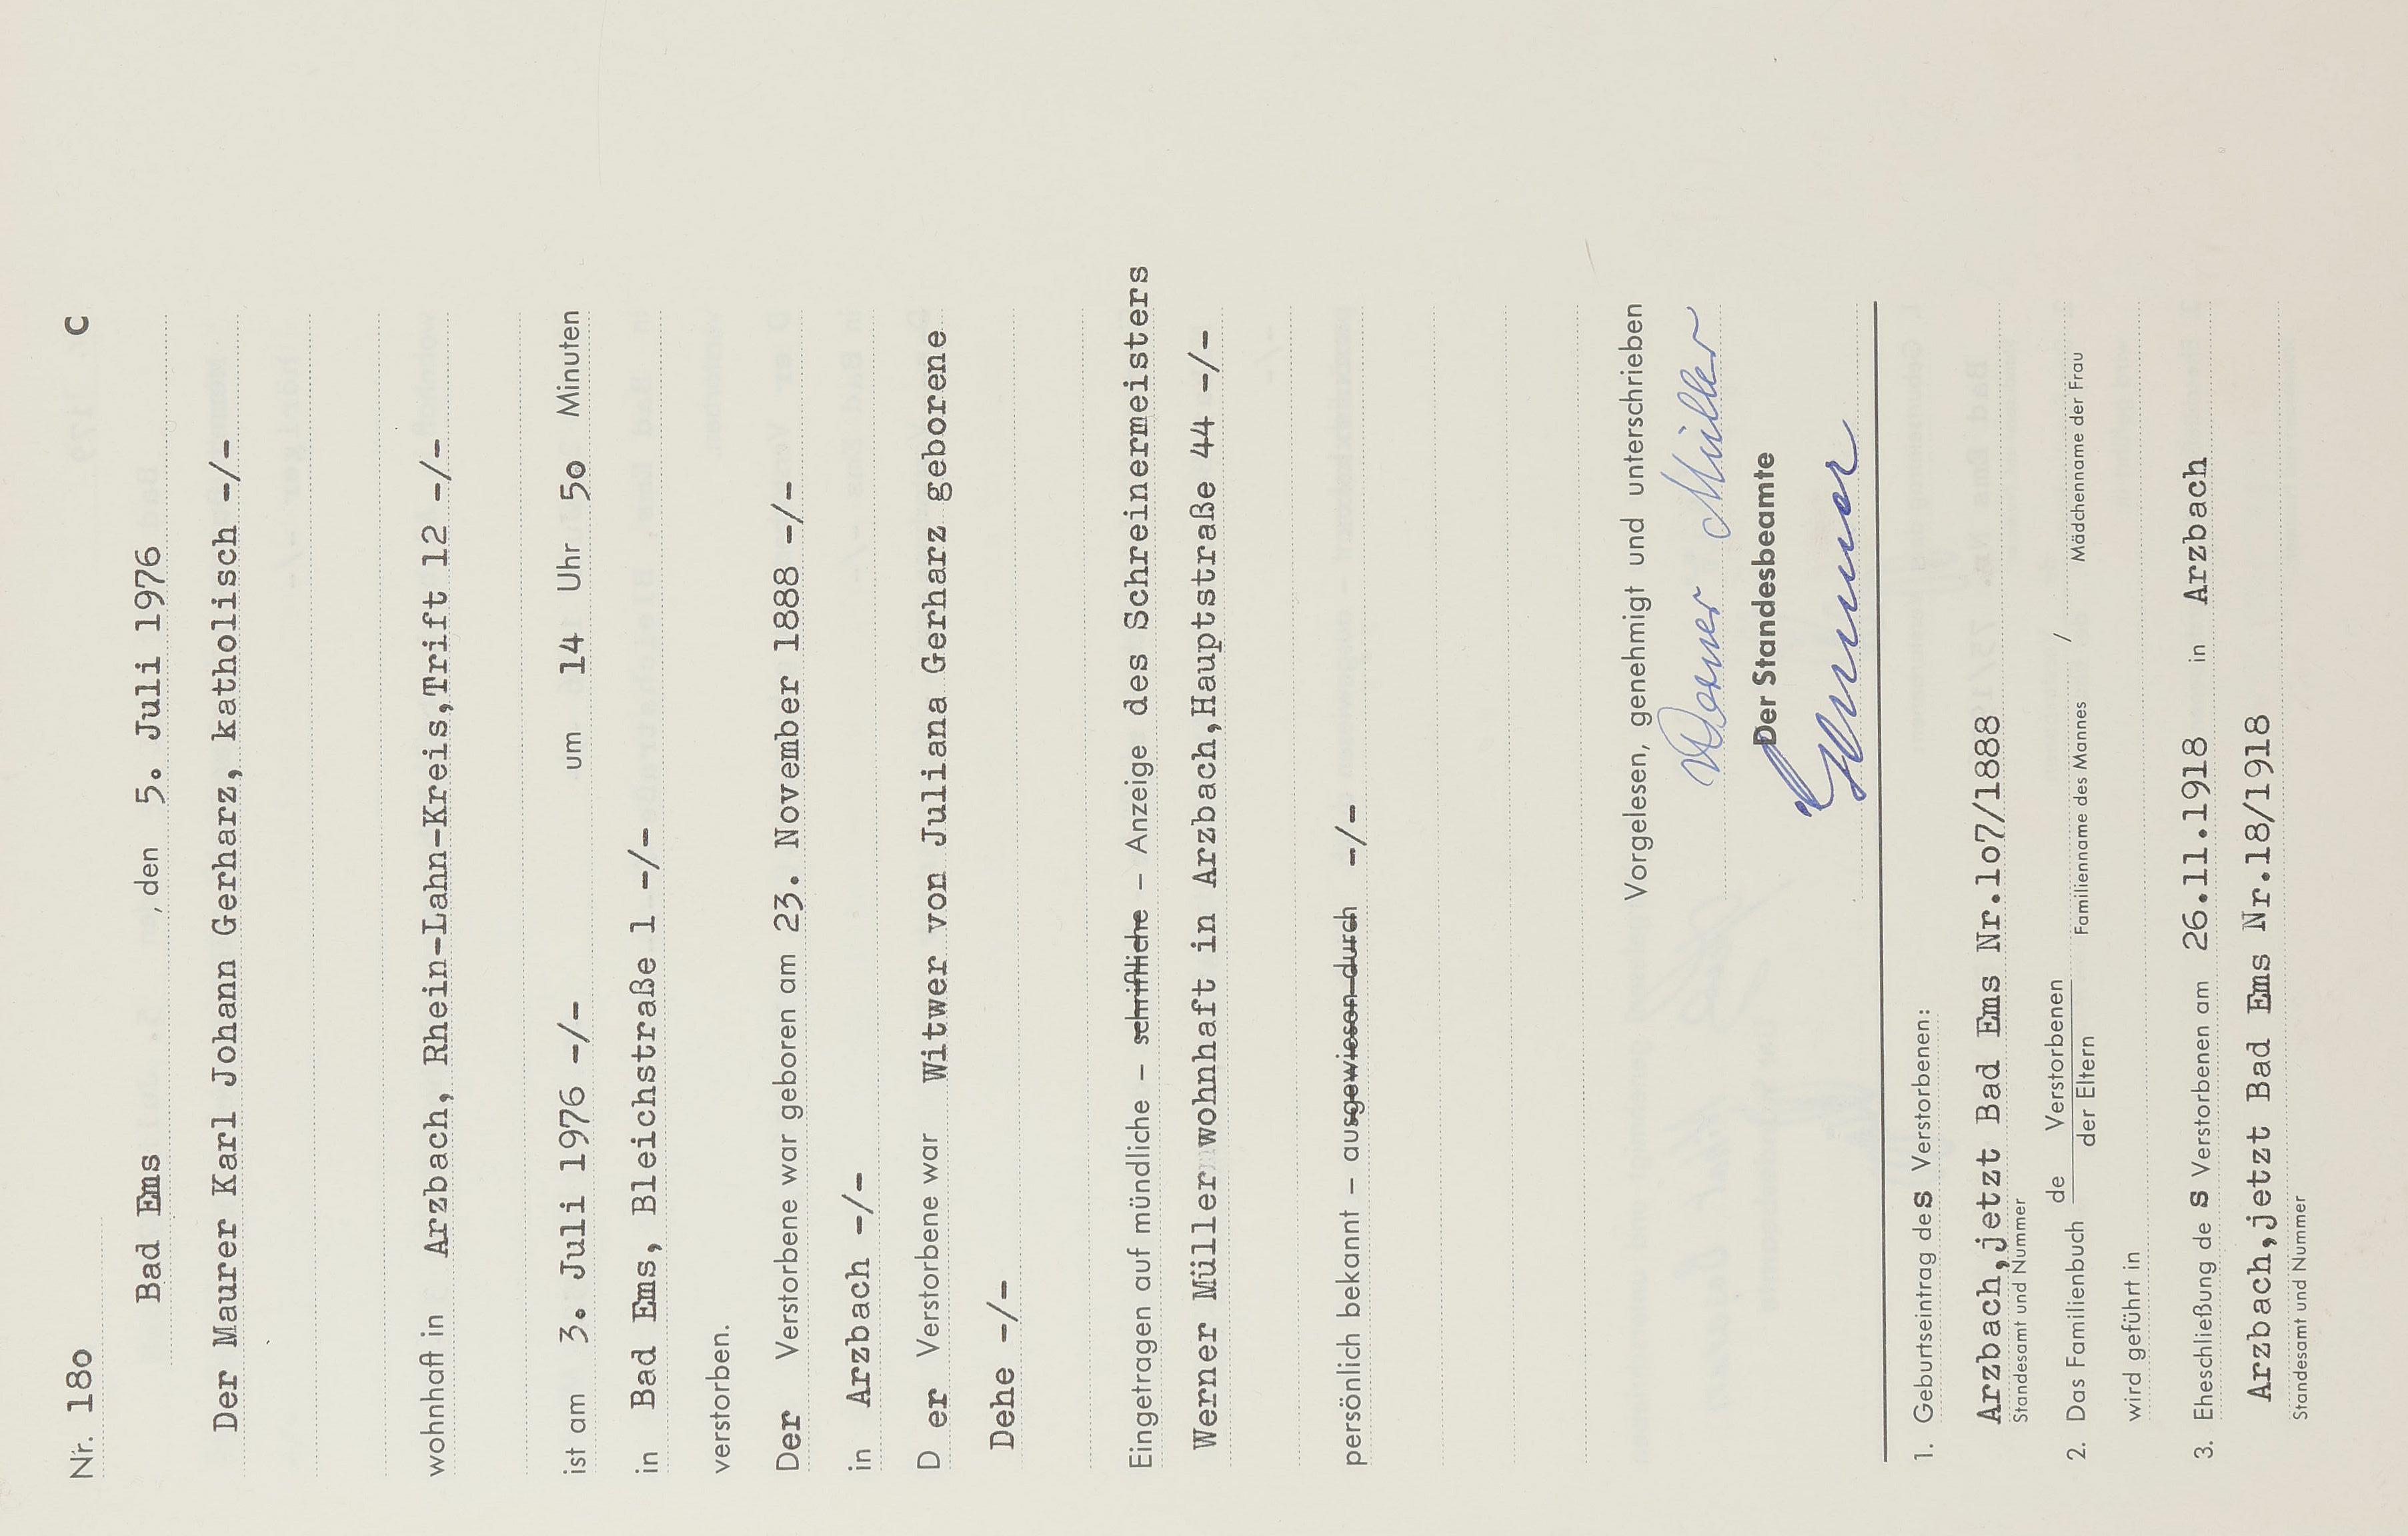 Nr. 18o C
Bad Ems , den 5. Juli 1976
Der Maurer Karl Johann Gerharz, katholisch -/-
wohnhaft in Arzbach, Rhein-Lahn-Kreis,Trift 12 -/-
ist am 3. Juli 1976 -/- um 14 Uhr 5o Minuten
in Bad Ems, Bleichstraße 1 -/-
verstorben.
Der Verstorbene war geboren am 23. November 1888 -/-
in Arzbach -/-
D er Verstorbene war Witwer von Juliana Gerharz geborene
Dehe -/-
Eingetragen auf mündliche – schriftliche – Anzeige des Schreinermeisters
Werner Müller wohnhaft in Arzbach,Hauptstraße 44 -/-
persönlich bekannt – ausgewiesen durch -/-
Vorgelesen, genehmigt und unterschrieben
Werner Müller
Der Standesbeamte
1. Geburtseintrag des Verstorbenen:
Arzbach,jetzt Bad Ems Nr.1o7/1888
Standesamt und Nummer
2. Das Familienbuch de Verstorbenen /
der Eltern Familienname des Mannes Mädchenname der Frau
wird geführt in
3. Eheschließung de s Verstorbenen am 26.11.1918 in Arzbach
Arzbach,jetzt Bad Ems Nr.18/1918
Standesamt und Nummer